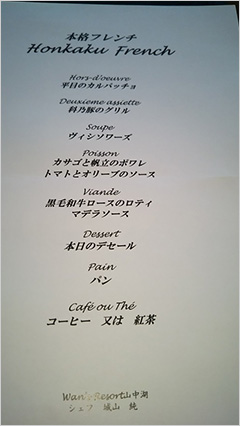 本格フレンチ
Honkaku French
Hors-d'oeuvre
平目のカルパッチョ
Deuxieme assiette
科乃豚のグリル
Soupe
ヴィシソワーズ
Poisson
カサゴと帆立のポワレ
トマトとオリーブのソース
Viande
黒毛和牛ロースのロティ
マデラソース
Dessert
本日のデセール
Pain
パン
Café ou Thé
コーヒー 又は 紅茶
Wan's Resort山中湖
シェフ 城山 純